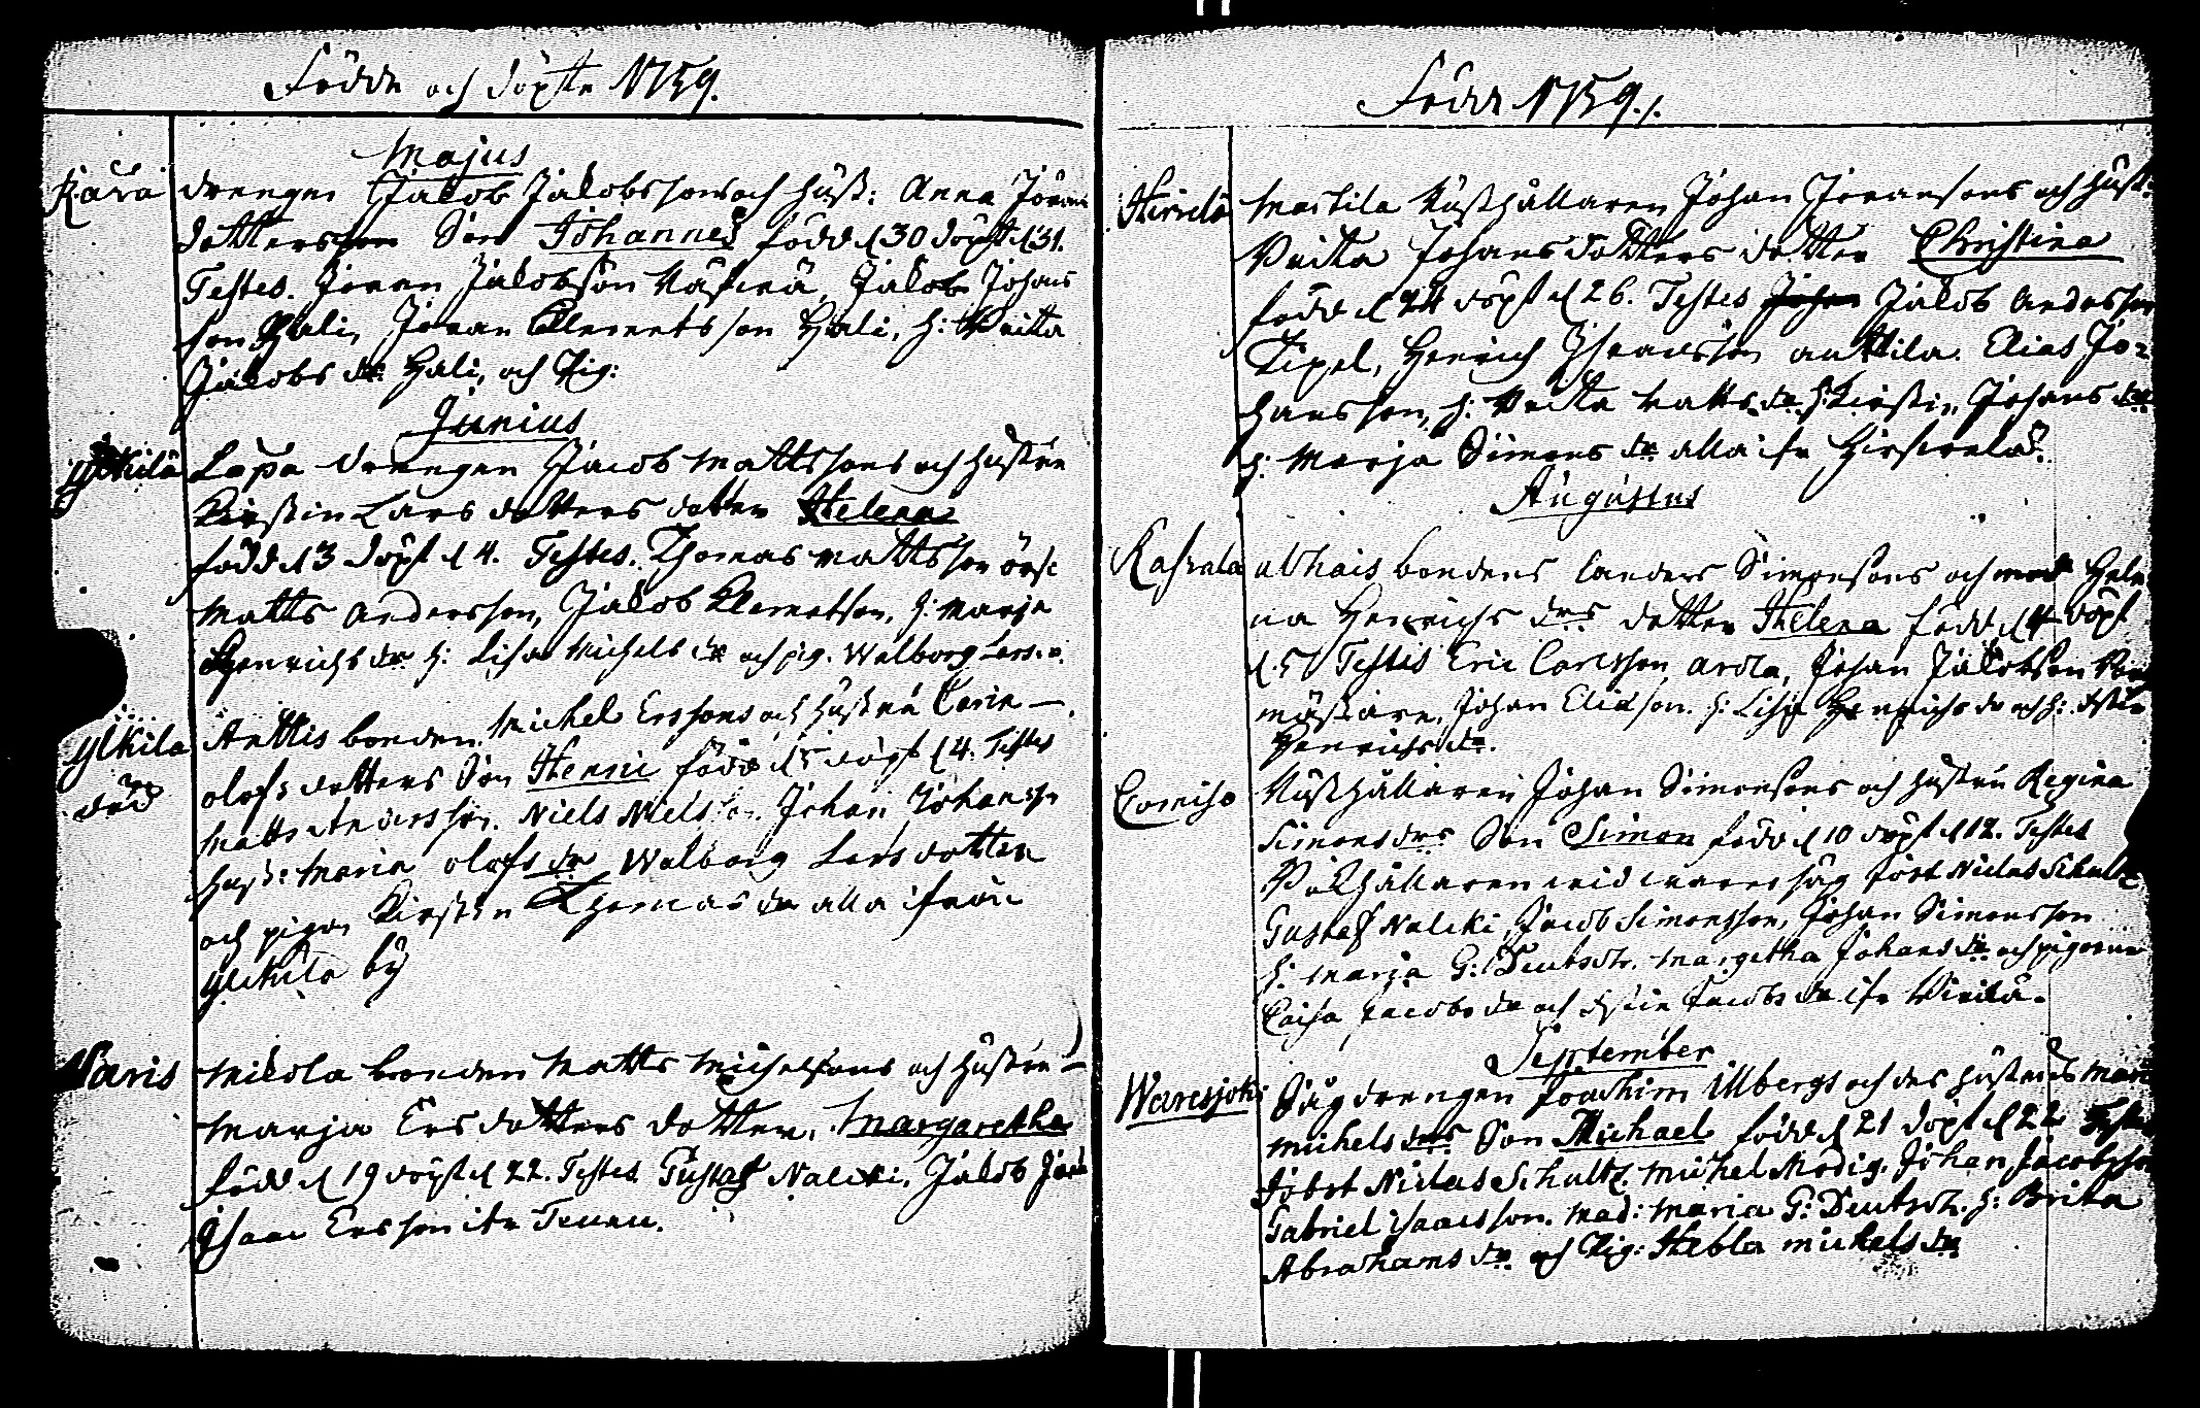 Födde och döpte 1759.
Majus
Kärä drengen Jakob Jakobssons och hust: Anna Jörans
dotters Son Johannes född d 30 döpt d 31.
Testes. Jöran Jakobsson Jakob Johans
son Hali, Jöran Clemetsson Hali, h: Britta
Jakobs dr Hali, och Pig:
Junius
Ylkilä Lapa drengen Jacob Mattssons och hustru
Kirstin Lars dotters dotter Helena
född d 3 döpt d 4. Testes. Thomas Mattsson
Matts Andersson, Jakob Clemetson, h: Marja
Henrichs dr h: Lisa Michels dr och pig. Walborg Lars
Ylkilä Anttis bonden Michel Erssons och hustru Carin
död Olofs dotters Son Henric född d 5 döpt d 4. Testes
Matts Andersson. Niels Nielsson Johan Johansson
hust: Maria Olofs dr Walborg Lars dotter
och pigan Kirstin Thomas dr alla ifrån
Ylikulä by
Waris Mikola bonden Matts Michelsons och hustru
Marja Ers dotters dotter. Margaretha
född d 19 döpt d 22. Testes Gustaf Nalcki, Jakob
Isaac Ersson ifr
Född 1759.
Marttila Rusthållaren Johan Jöransons och hust:
Britta Johans dotters dotter Christina
född d 24 döpt d 26. Testes Johan Jakob Andersson
Henrich anttila. Elias Jo-
hansson, h: Britta Matts dr h: Kirstin Johans dr
h: Marja Simons dr alla ifr
Augustus
Uthais bondens Anders Simonsons och Hele
na Henrichs drs dotter Helena född d 4 döpt
d 5 Testes Eric Carlsson Arola, Johan Jakobson
Johan Eliason. h: Lisa Henrichs dr och h:
Henrichs dr.
Comiso Rusthållaren Johan Simonsons och hustru Regina
Simons drs Son Simon född d 10 döpt d 12. Testes
såg Niclas Schultz
Gustaf Nalcki, Jacob Simonsson, Johan Simonsson
h: Marja G: Deutsch. Margetha Johans dr och pigorna
Caisa Jacobs dr och Jacobs dr ifr
September
Waresjoki Såg drengen Joachim Ulbergs och des hustrus Maria
Michels drs Son Michael född d 21 döpt d 22 Testes
Niclas Schultz. Michel Modig. Johan Jacobsson
Gabriel Isaacsson. Mad: Maria G: Deutsch. h: Brita
Abrahams dr och Pig: Hebla Michels dr